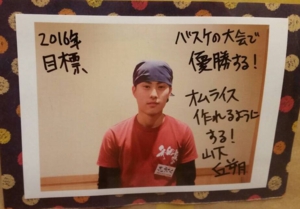 2016年
目標
バスケの大会で
優勝する!
オムライス
作れるように
する!
山下